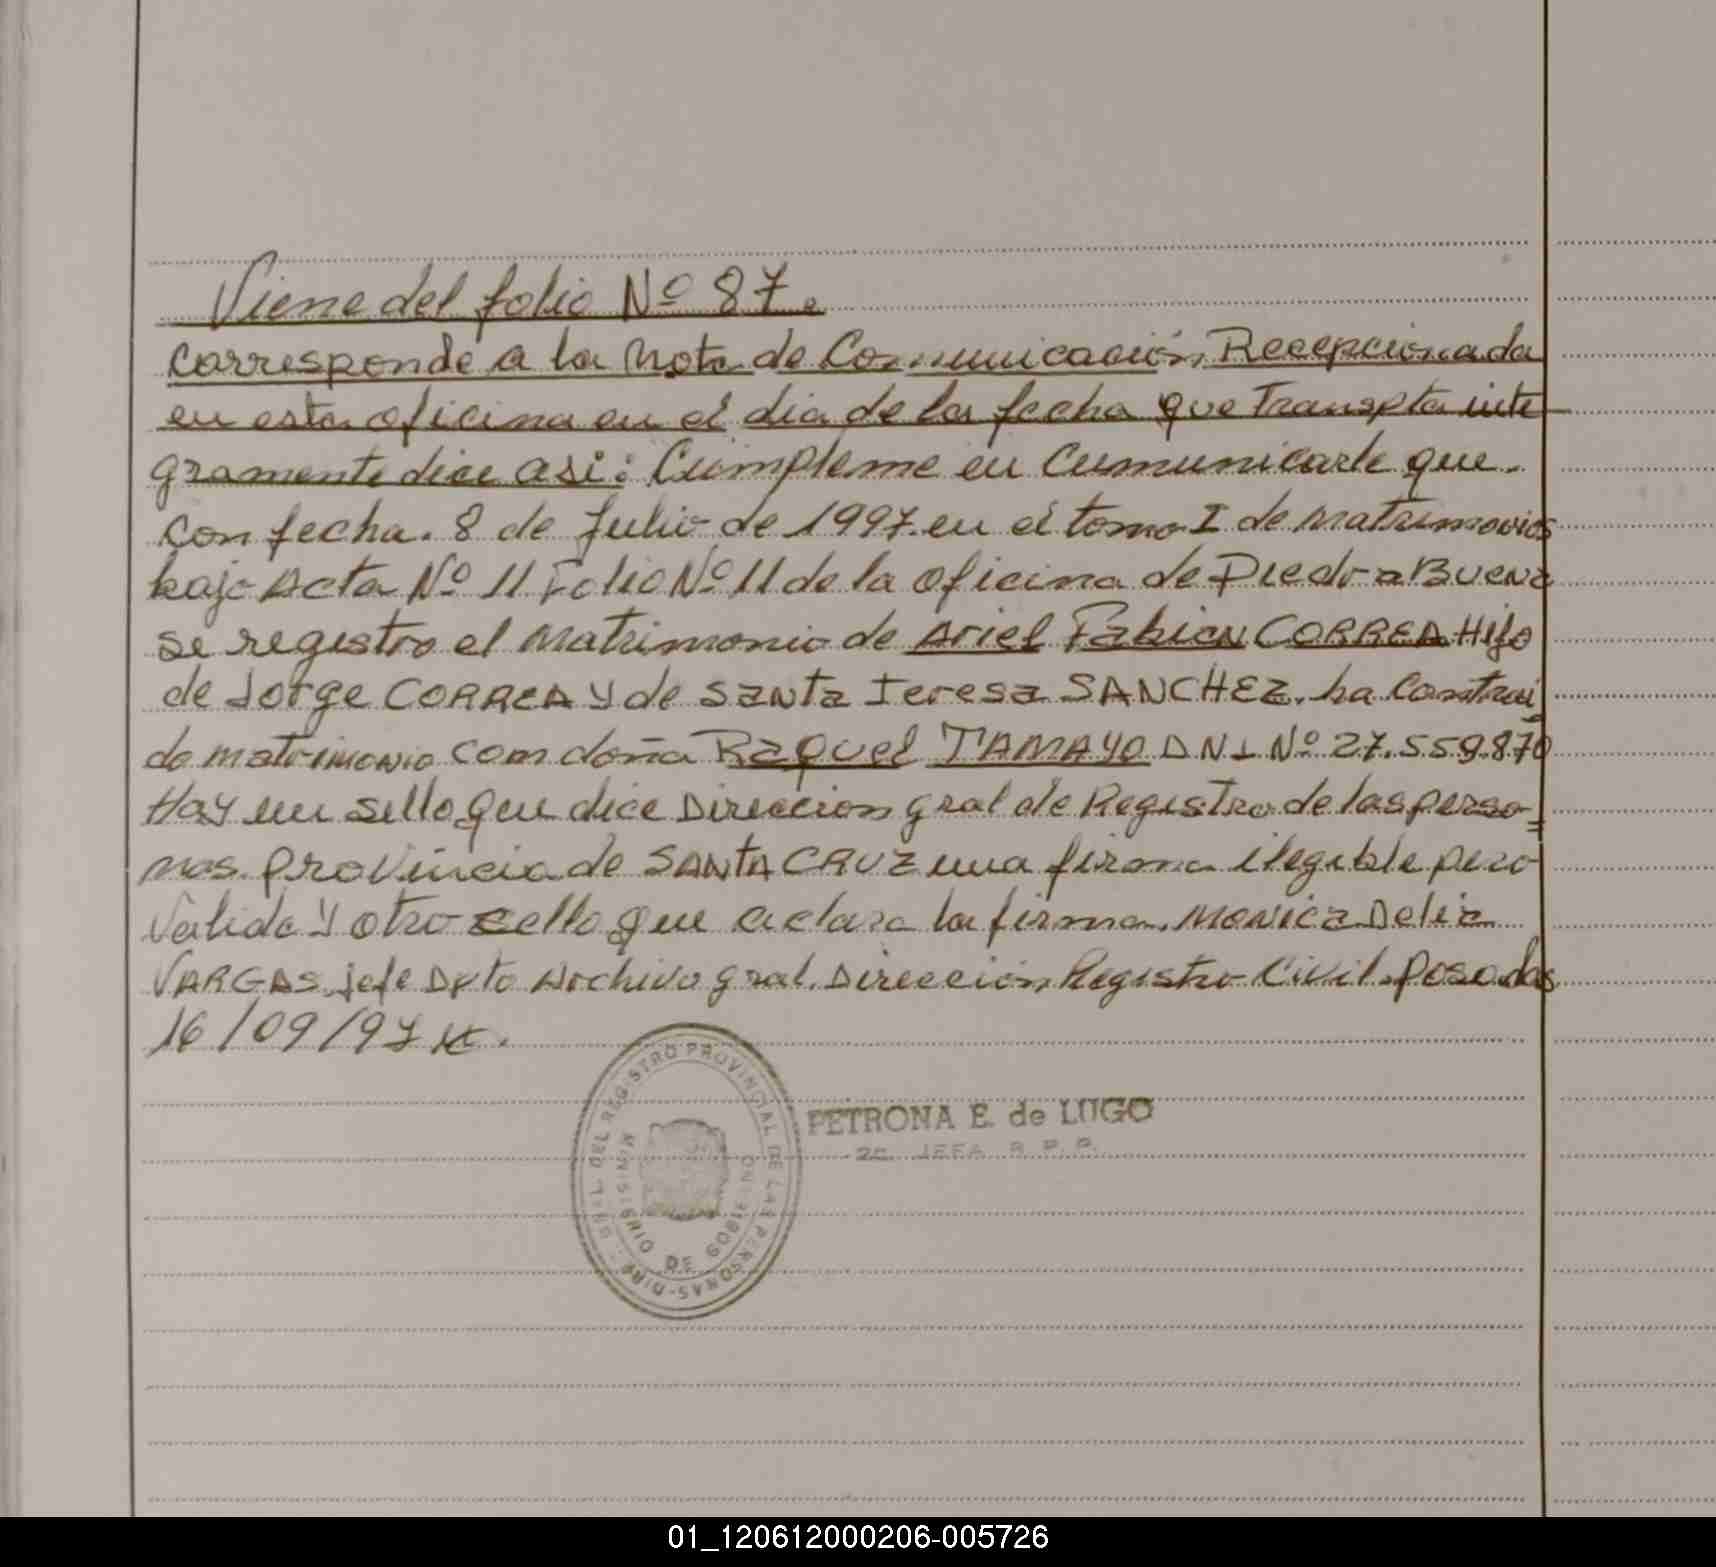 Viene del folio Nº 87.
Corresponde a la Nota de Comunicación Recepcionada
en esta oficina en el dia de la fecha que transpta inte
gramente dice asi: Cumpleme en Cumunicarle que.
Con fecha. 8 de Julio de 1997. en el tomo I de matrimonios
bajo Acta Nº 11 Folio Nº 11 de la oficina de Piedra Buena
se registro el matrimonio de Ariel Fabian CORREA Hijo
de Jorge CORREA y de Santa Teresa SANCHEZ. ha Contrai
do matrimonio con doña Raquel TAMAYO DNI Nº 27.559.870
Hay un sello que dice Direccion gral de Registro de las perso=
nas. Provincia de SANTA CRUZ una firma ilegible pero
Valida y otro sello que aclara la firma. MONICA Delia
VARGAS jefe Dpto Archivo gral. Dirección Registro Civil. Posadas
16/09/97
DIRE GRAL. DEL REGISTRO PROVINCIAL DE LAS PERSONAS
MINISTERIO DE GOBIERNO
PETRONA E. de LUGO
2a JEFA R.P.P.
01_120612000206-005726